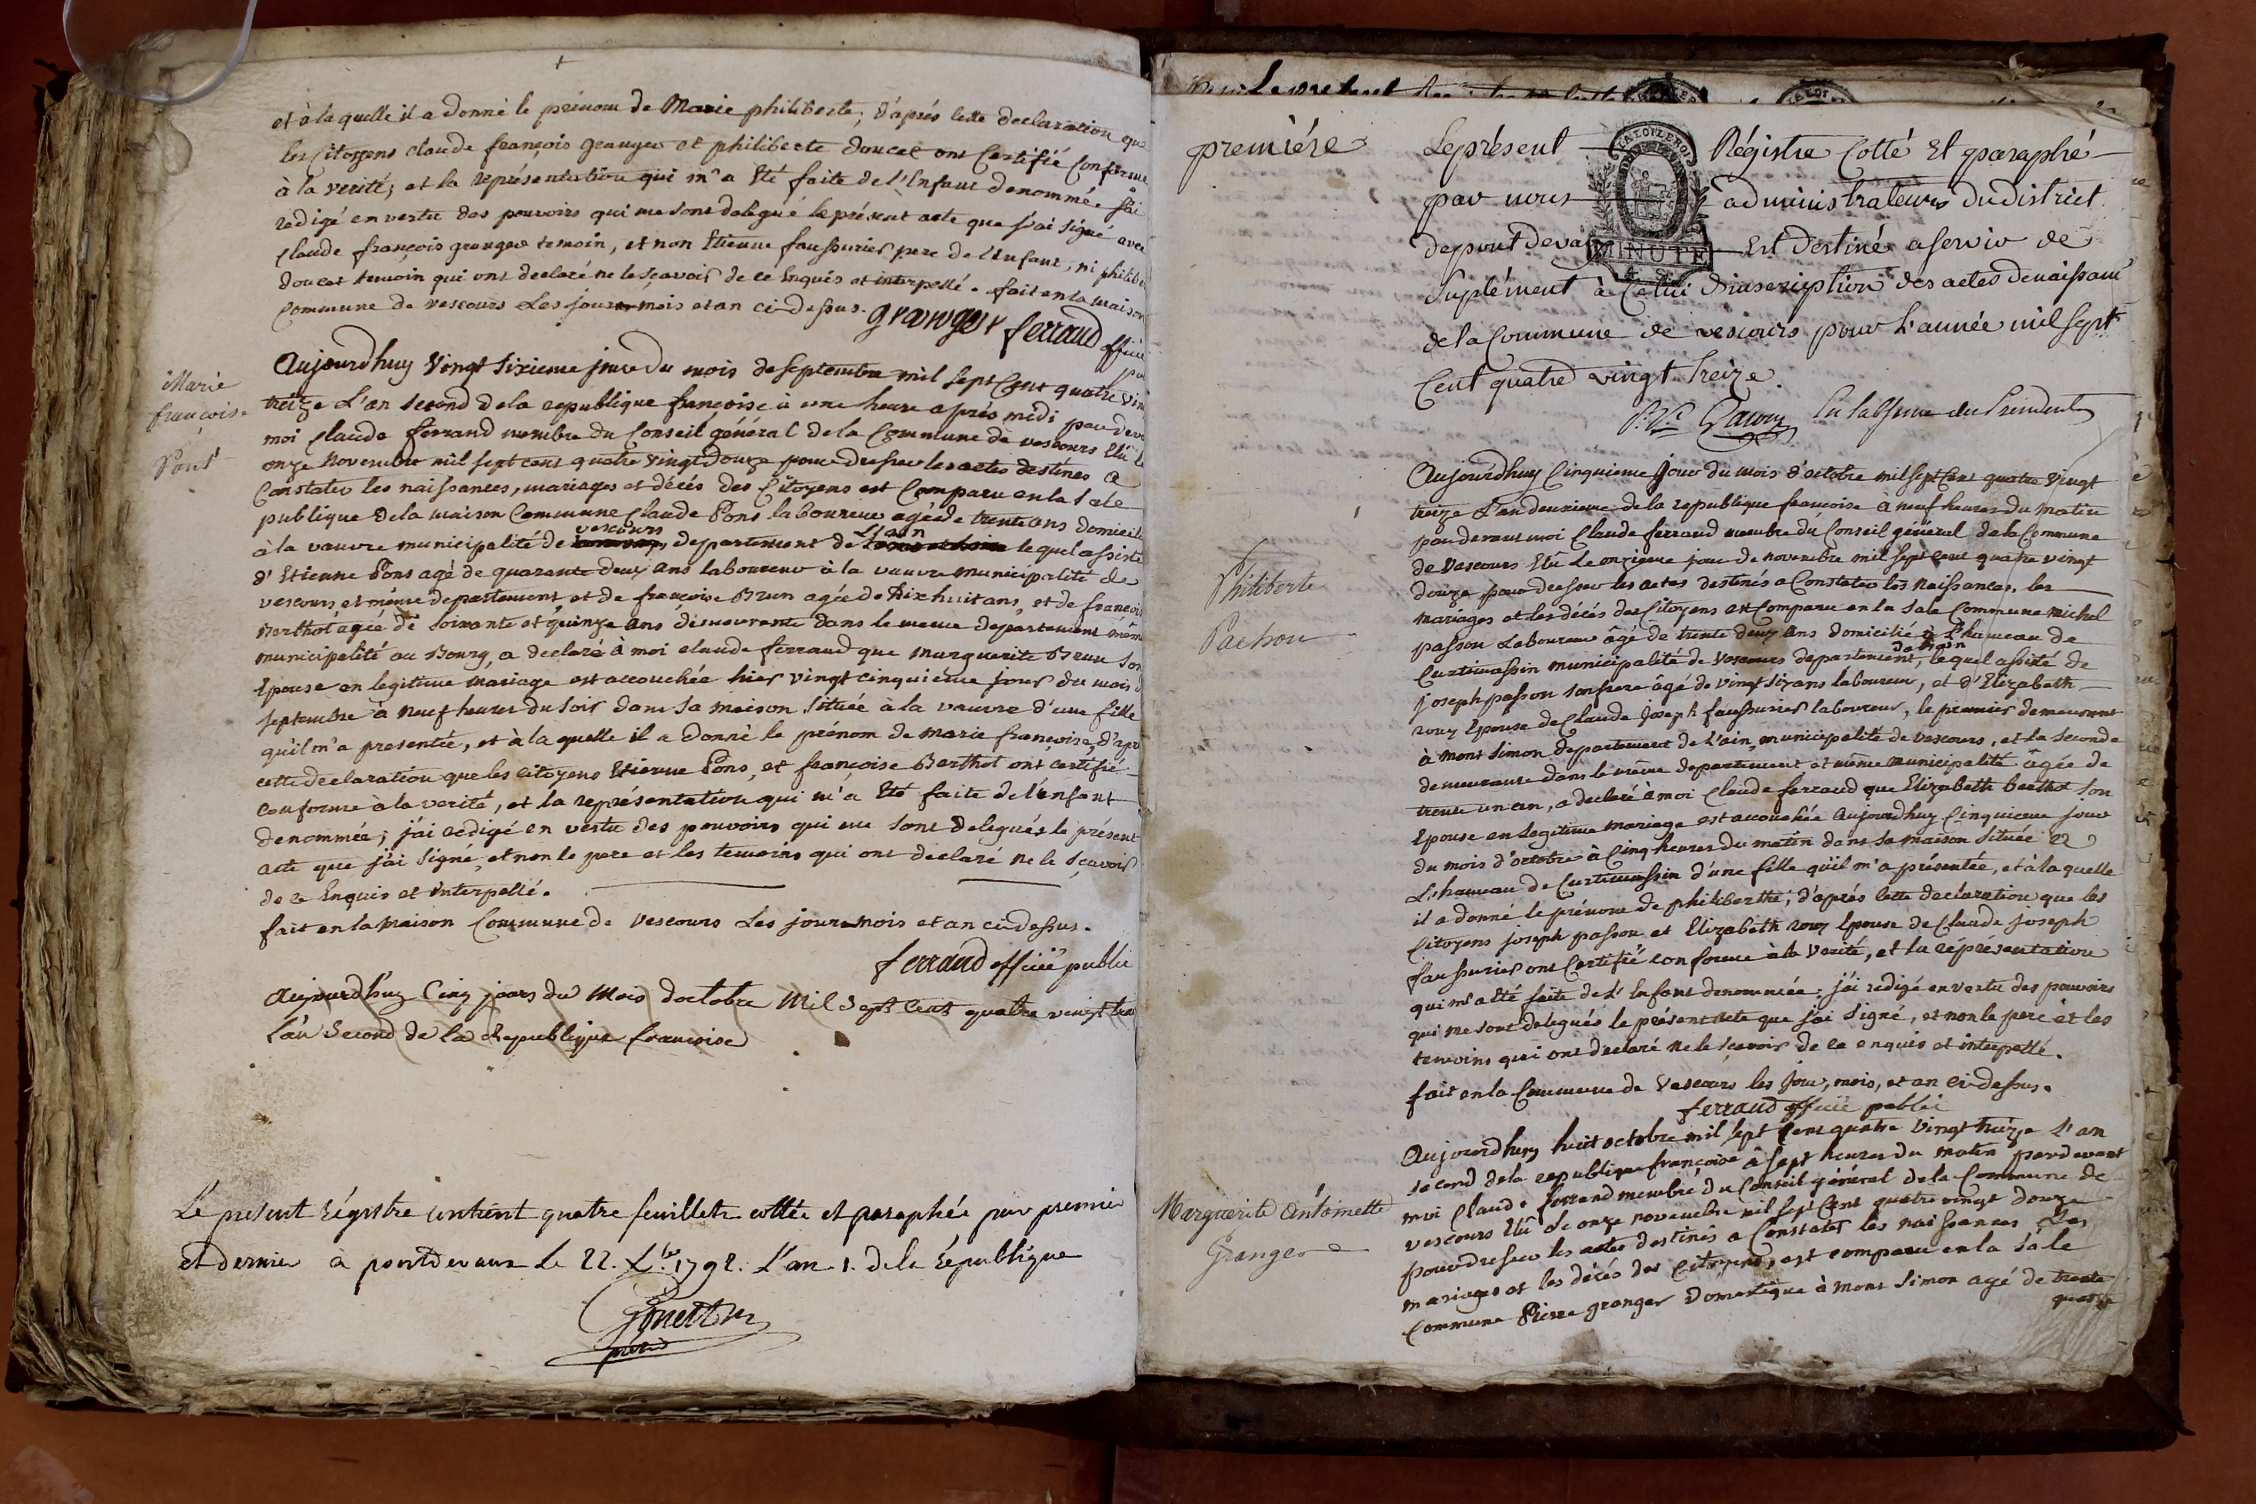 et à la quelle il a donné le prénom de Marie philiberte, d'aprés cette declaration que
les Citoyens claude françois granger et philiberte doucet ont Certifié Conforme
à la verité, et la représentation qui m'a Eté faite de l'Enfant denommée j'ai
redigé en vertu des pouvoirs qui me sont delegué le présent acte que j'ai signé avec
claude françois granger temoin, et non Etienne faussurier pere de l'Enfant, ni philib
doucet temoin qui ont declaré ne le sçavoir de ce Enquis et interpellé. fait en la maison
Commune de vescours Les jour mois et an ci dessus. granger ferraud officié
pu
Marie
françoise
Pont
Aujourdhuy Vingt sixieme jour du mois de septembre mil sept Cent quatre vin
treize L'an second de la republique françoise à une heure aprés midi pardeva
moi claude ferraud membre du Conseil général de la Commune de vescours Elû le
onze Novembre mil sept cent quatre vingt douze pour dresser les actes destinés a
Constater les naissances, mariages et décés des Citoyens est Comparu en la sale
publique de la maison Commune claude Pons laboureur agé de trente ans domicilié
vescours L'ain
à la vauvre municipalité de departement de lequel assisté
d'Etienne Pons agé de quarante deux ans laboureur à la vauvre municipalité de
vescours, et même departement, et de françoise Brun agée de dix huit ans, et de françoi
Berthot agée de soixante et quinze ans demeurante dans le meme departement même
municipalité au Bourg, a declaré à moi claude ferraud que marguerite Brun son
Epouse en legitime mariage est accouchée hier vingt cinquiéme jour du mois d
septembre à neuf heures du soir dans sa maison située à la vauvre d'une fille
qu'il m'a presentée, et à la quelle il a donné le prénom de marie françoise, d'apr
cette declaration que les citoyens Etienne Pons, et françoise Berthot ont certifié
conforme à la verité, et la représentation qui m'a Eté faite de l'enfant
denommée; j'ai redigé en vertu des pouvoirs qui me sont delegués le présent
acte que j'ai signé, et non le pere et les temoins qui ont declaré ne le sçavoir
de ce Enquis et interpellé.
fait en la maison Commune de vescours Les jour mois et an ci dessus.
ferraud officié public
Aujourd'huy Cinq jours du Mois doctobre Mil Sept Cent quatre vingt trei
L'an Second de la Republique francoise
Le present Régistre contient quatre feuillets cottés et paraphés par premier
et dernier à pontdevaux le 22. Xbr. 1792. L'an 1. de la République
premiére
Le présent Régistre Cotté Et paraphré
par nous administrateurs du District
de pont de va Est Destiné a servir de
Suplément à Celui d'inscription des actes de naissance
de la Commune de vescours pour L'année mil sept
Cent quatre vingt treize.
LA LOI LE ROI
MINUTE
4. S.
En l'absence du President
Philiberte
Pachon
Aujourdhuy Cinquieme jour du mois d'octobre mil sept Cent quatre Vingt
treize L'an deuxieme de la republique francoise à neuf heures du matin
pardevant moi Claude ferraud membre du Conseil général de la Commune
de Vescours Elû Le onzieme jour de novembre mil sept cent quatre vingt
douze pour dresser les actes destinés a Constater les naissances, les
mariages et les décés des Citoyens est Comparu en la sale Commune michel
passon Laboureur âgé de trente deux ans domicilié à L'hameau de
de L'ain
Curtimassin municipalité de Vescours departement, lequel assisté de
joseph passon son frere âgé de vingt six ans laboureur, et d'Elizabeth
rouy Epouse de Claude joseph faussurier laboureur, le premier demeurant
à mont simon departement de L'ain, municipalité de vescours, et la seconde
demeurante dans le même departement et même municipalité âgée de
trente un an, a declaré à moi Claude ferraud que Elizabeth berthot son
Epouse en legitime mariage est accouchée aujourdhuy Cinquieme jour
du mois d'octobre à Cinq heures du matin dans sa maison située a
L'hameau de Curtimassin d'une fille qu'il m'a présentée, et à la quelle
il a donné le prénom de philiberthe; d'aprés cette declaration que les
Citoyens joseph passon et Elizabeth rouy Epouse de Claude joseph
faussurier ont Certifié conforme à la Verité, et la représentation
qui m'a Eté faite de l'Enfant denommée; j'ai redigé en vertu des pouvoirs
qui me sont delegués le présent acte que j'ai signé, et non le pere et les
temoins qui ont declaré ne le sçavoir de ce enquis et interpellé.
fait en la Commune de Vescours les jour, mois, et an ci-dessus.
ferraud officié public
Marguerite Antoinette
Granger
Aujourdhuy huit octobre mil sept Cent quatre Vingt treize L'an
second de la republique françoise à sept heures du matin pardevant
moi Claude ferraud membre du Conseil général de la Commune de
vescours Elû le onze novembre mil sept Cent quatre vingt douze
pour dresser les actes destinés a Constater les naissances Les
mariages et les décés des Citoyens, est comparu en la sale
Commune Pierre granger Domestique à mont simon agé de trente
quatre